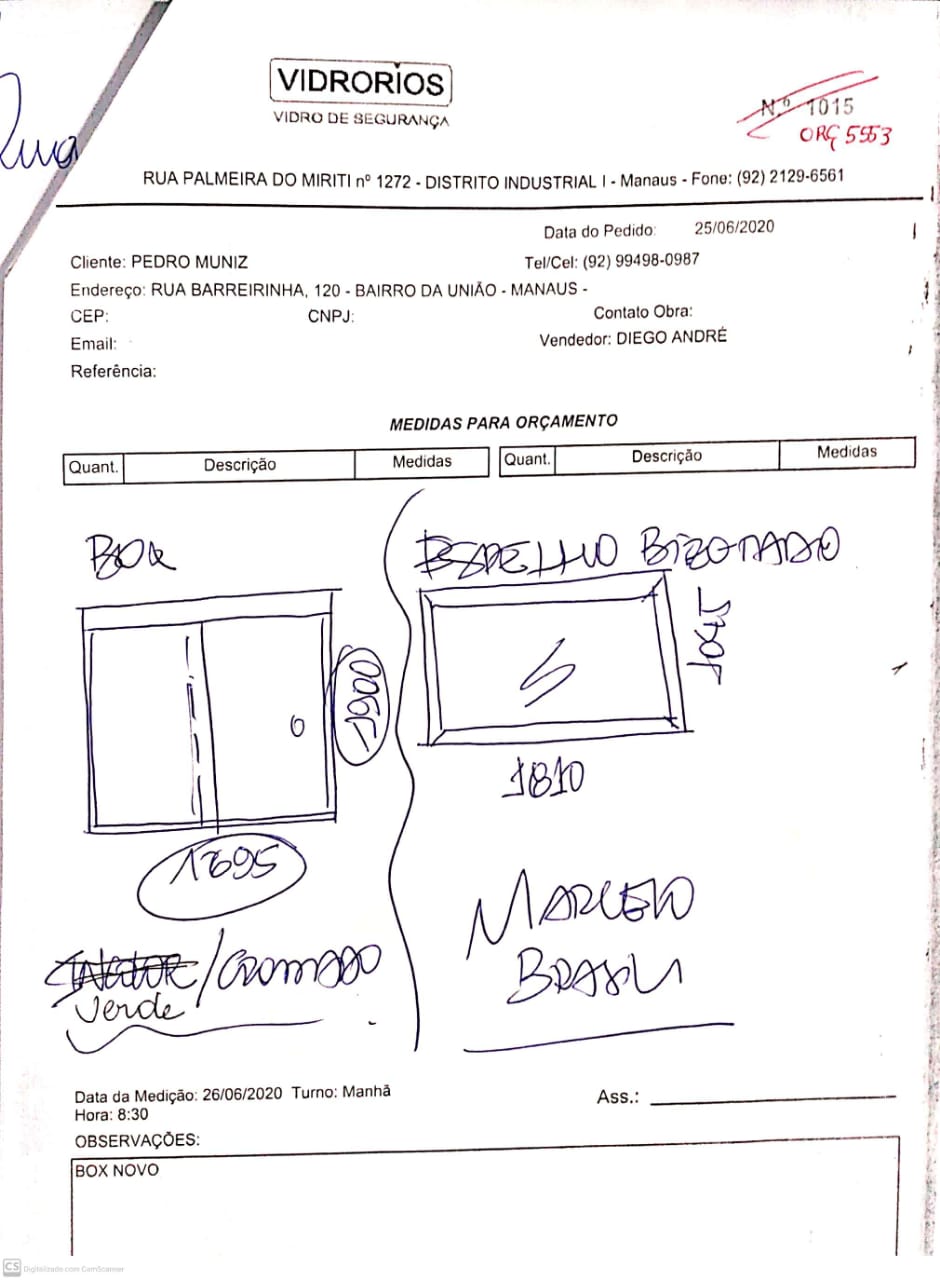 VIDRORIOS
VIDRO DE SEGURANÇA
Nº 1015
ORÇ 5553
Rua
RUA PALMEIRA DO MIRITI nº 1272 - DISTRITO INDUSTRIAL I - Manaus - Fone: (92) 2129-6561
Data do Pedido: 25/06/2020
Cliente: PEDRO MUNIZ Tel/Cel: (92) 99498-0987
Endereço: RUA BARREIRINHA, 120 - BAIRRO DA UNIÃO - MANAUS -
CEP: CNPJ: Contato Obra:
Email: Vendedor: DIEGO ANDRÉ
Referência:
MEDIDAS PARA ORÇAMENTO
Quant. Descrição Medidas Quant. Descrição Medidas
BOX
ESPELHO BIZOTADO
1900
1045
1810
1695
MARCELO
BRASIL
INCOLOR/CROMADO
Verde
Data da Medição: 26/06/2020 Turno: Manhã
Hora: 8:30
Ass.:
OBSERVAÇÕES:
BOX NOVO
CS Digitalizado com CamScanner